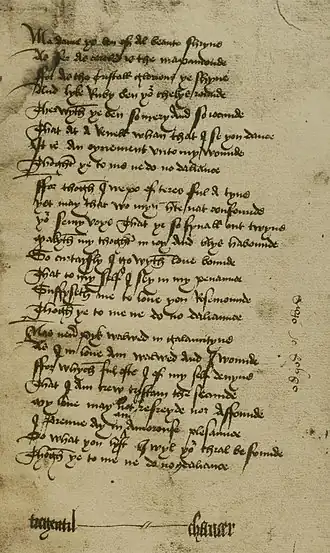 Ma dame ye ben of al beaute shryne
As fer as cercled is the mapamonde
For as the cristall glorious ye shyne
And lyke Ruby ben yor chekys rounde
Therwyth ye ben so mery and so iocunde
That at a Reuell whan that I se you dance
It is an oynement vnto my wounde
Thoght ye to me ne do no daliance
For thogh I wepe of teres ful a tyne
Yet may that wo myn herte nat confounde
Yor semy voys that ye so smal out twyne
Makyth my thoght in ioy and blys habounde
So curtaysly I go wyth loue bounde
That to my self I sey in my penaunce
Suffyseth me to loue you Rosemounde
Thogh ye to me ne do no daliaunce
Nas neuer pyk walwed in galauntyne
As I in loue am walwed and I wounde
For whych ful ofte I of my self deuyne
That I am trew Tristam the secunde
My loue may not refreyde nor affounde
I brenne ay in amorouse plesaunce
Do what you lyst I wyl yor thral be founde
Thogh ye to me ne do no daliance
tregentil chaucer